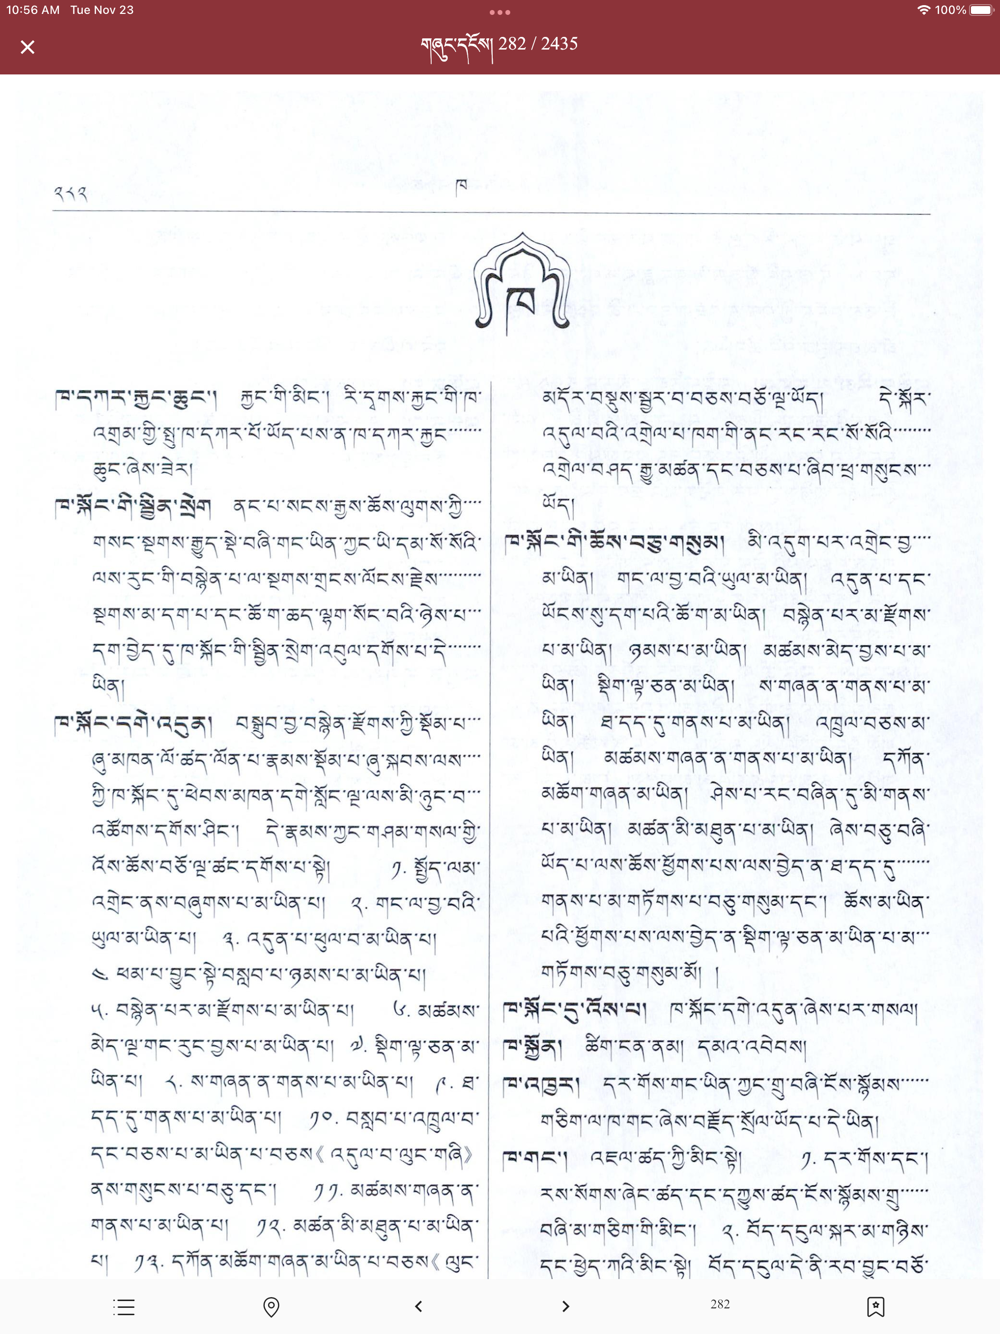 10:56 AM Tue Nov 23
100%
གཞུང་དངོས། 282 / 2435
༢༨༢
ཁ
ཁ
ཁ་དཀར་རྐྱང་ཆུང་། རྐྱང་གི་མིང་། རི་དྭགས་རྐྱང་གི་ཁ་
འགྲམ་གྱི་སྤུ་ཁ་དཀར་པོ་ཡོད་པས་ན་ཁ་དཀར་རྐྱང་
ཆུང་ཞེས་ཟེར།
ཁ་སྐོང་གི་སྦྱིན་སྲེག ནང་པ་སངས་རྒྱས་ཆོས་ལུགས་ཀྱི་
གསང་སྔགས་རྒྱུད་སྡེ་བཞི་གང་ཡིན་ཀྱང་ཡི་དམ་སོ་སོའི་
ལས་རུང་གི་བསྙེན་པ་ལ་སྔགས་གྲངས་ལོངས་རྗེས་
སྔགས་མ་དག་པ་དང་ཆོ་ག་ཆད་ལྷག་སོང་བའི་ཉེས་པ་
དག་བྱེད་དུ་ཁ་སྐོང་གི་སྦྱིན་སྲེག་འབུལ་དགོས་པ་དེ་
ཡིན།
ཁ་སྐོང་དགེ་འདུན། བསྒྲུབ་བྱ་བསྙེན་རྫོགས་ཀྱི་སྡོམ་པ་
ཞུ་མཁན་ལོ་ཚད་ལོན་པ་རྣམས་སྡོམ་པ་ཞུ་སྐབས་ལས་
ཀྱི་ཁ་སྐོང་དུ་ཕེབས་མཁན་དགེ་སློང་ལྔ་ལས་མི་ཉུང་བ་
འཚོགས་དགོས་ཤིང་། དེ་རྣམས་ཀྱང་གཤམ་གསལ་གྱི་
འོས་ཆོས་བཅོ་ལྔ་ཚང་དགོས་པ་སྟེ། ༡. སྤྱོད་ལམ་
འགྲེང་ནས་བཞུགས་པ་མ་ཡིན་པ། ༢. གང་ལ་བྱ་བའི་
ཡུལ་མ་ཡིན་པ། ༣. འདུན་པ་ཕུལ་བ་མ་ཡིན་པ།
༤. ཕམ་པ་བྱུང་སྟེ་བསླབ་པ་ཉམས་པ་མ་ཡིན་པ།
༥. བསྙེན་པར་མ་རྫོགས་པ་མ་ཡིན་པ། ༦. མཚམས་
མེད་ལྔ་གང་རུང་བྱས་པ་མ་ཡིན་པ། ༧. སྡིག་ལྟ་ཅན་མ་
ཡིན་པ། ༨. ས་གཞན་ན་གནས་པ་མ་ཡིན་པ། ༩. ཐ་
དད་དུ་གནས་པ་མ་ཡིན་པ། ༡༠. བསླབ་པ་འཁྲུལ་བ་
དང་བཅས་པ་མ་ཡིན་པ་བཅས《འདུལ་བ་ལུང་གཞི》
ནས་གསུངས་པ་བཅུ་དང་། ༡༡. མཚམས་གཞན་ན་
གནས་པ་མ་ཡིན་པ། ༡༢. མཚན་མི་མཐུན་པ་མ་ཡིན་
པ། ༡༣. དཀོན་མཆོག་གཞན་མ་ཡིན་པ་བཅས《ལུང་
མདོར་བསྡུས་སྦྱར་བ་བཅས་བཅོ་ལྔ་ཡོད། དེ་སྐོར་
འདུལ་བའི་འགྲེལ་པ་ཁག་གི་ནང་རང་རང་སོ་སོའི་
འགྲེལ་བཤད་རྒྱུ་མཚན་དང་བཅས་པ་ཞིབ་ཕྲ་གསུངས་
ཡོད།
ཁ་སྐོང་གི་ཆོས་བཅུ་གསུམ། མི་འདུག་པར་འགྲེང་བྱ་
མ་ཡིན། གང་ལ་བྱ་བའི་ཡུལ་མ་ཡིན། འདུན་པ་དང་
ཡོངས་སུ་དག་པའི་ཆོ་ག་མ་ཡིན། བསྙེན་པར་མ་རྫོགས་
པ་མ་ཡིན། ཉམས་པ་མ་ཡིན། མཚམས་མེད་བྱས་པ་མ་
ཡིན། སྡིག་ལྟ་ཅན་མ་ཡིན། ས་གཞན་ན་གནས་པ་མ་
ཡིན། ཐ་དད་དུ་གནས་པ་མ་ཡིན། འཁྲུལ་བཅས་མ་
ཡིན། མཚམས་གཞན་ན་གནས་པ་མ་ཡིན། དཀོན་
མཆོག་གཞན་མ་ཡིན། ཤེས་པ་རང་བཞིན་དུ་མི་གནས་
པ་མ་ཡིན། མཚན་མི་མཐུན་པ་མ་ཡིན། ཞེས་བཅུ་བཞི་
ཡོད་པ་ལས་ཆོས་ཕྱོགས་པས་ལས་བྱེད་ན་ཐ་དད་དུ་
གནས་པ་མ་གཏོགས་པ་བཅུ་གསུམ་དང་། ཆོས་མ་ཡིན་
པའི་ཕྱོགས་པས་ལས་བྱེད་ན་སྡིག་ལྟ་ཅན་མ་ཡིན་པ་མ་
གཏོགས་བཅུ་གསུམ་མོ། །
ཁ་སྐོང་དུ་འོས་པ། ཁ་སྐོང་དགེ་འདུན་ཞེས་པར་གསལ།
ཁ་སྐྱོན། ཚིག་ངན་ནམ། དམའ་འབེབས།
ཁ་འཁྱར། དར་གོས་གང་ཡིན་ཀྱང་གྲུ་བཞི་ངོས་སྙོམས་
གཅིག་ལ་ཁ་གང་ཞེས་བརྗོད་སྲོལ་ཡོད་པ་དེ་ཡིན།
ཁ་གང་། འཇལ་ཚད་ཀྱི་མིང་སྟེ། ༡. དར་གོས་དང་།
རས་སོགས་ཞེང་ཚད་དང་དཀྱུས་ཚད་ངོས་སྙོམས་གྲུ་
བཞི་མ་གཅིག་གི་མིང་། ༢. བོད་དངུལ་སྐར་མ་གཉིས་
དང་ཕྱེད་ཀའི་མིང་སྟེ། བོད་དངུལ་དེ་ནི་རབ་བྱུང་བཅོ་
282